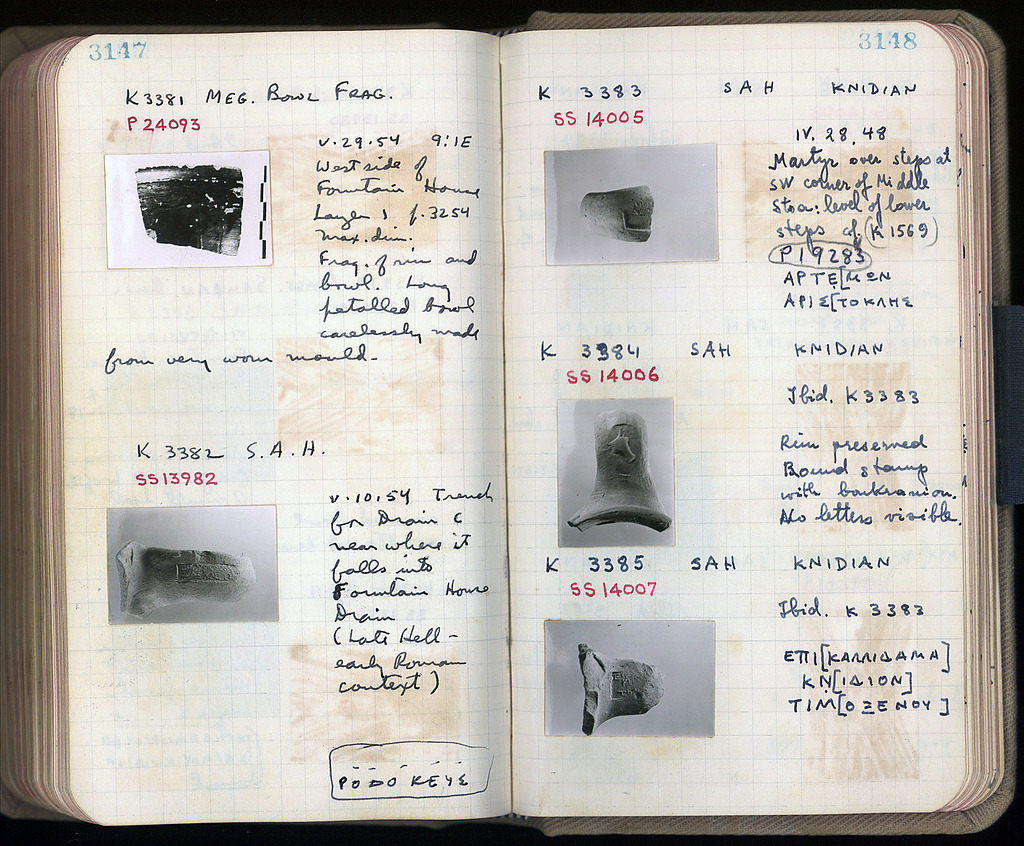 3147
K 3381 MEG. BOWL FRAG.
P 24093
V.29.54 9:1E
West side of
Fountain House
Layer 1 p. 3254
Max. dim.
Frag. of rim and
bowl. Long
petalled bowl
carelessly made
from very worn mould.
K 3382 S.A.H.
SS 13982
V.10.54 Trench
for Drain C
near where it
falls into
Fountain House
Drain
(Late Hell-
early Roman
context)
3148
K 3383 SAH KNIDIAN
SS 14005
IV. 28, 48
Martyr over steps at
SW corner of Middle
Stoa: level of lower
steps cf. (K 1569)
P19283
ΑΡΤΕ[ΜΩΝ
ΑΡΙΣ[ΤΟΚΛΗΣ
K 3384 SAH KNIDIAN
SS 14006
Ibid. K 3383
Rim preserved
Round stamp
with boukranion.
No letters visible.
K 3385 SAH KNIDIAN
SS 14007
Ibid. K 3383
ΕΠΙ[ΚΑΛΛΙΔΑΜΑ]
ΚΝ[ΙΔΙΟΝ]
ΤΙΜ[ΟΞΕΝΟΥ]